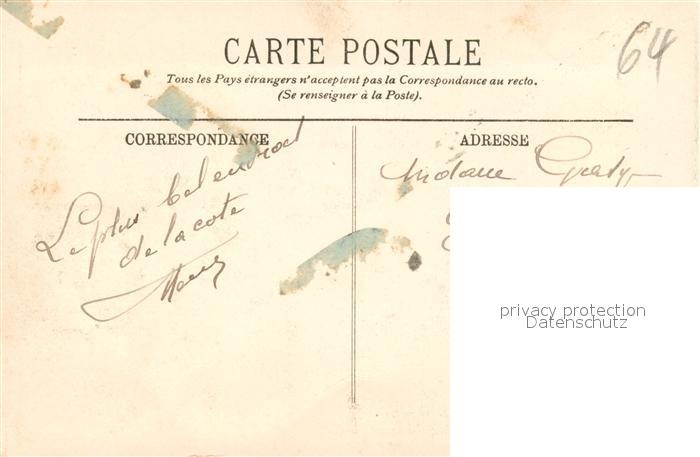 64
CARTE POSTALE
Tous les Pays étrangers n'acceptent pas la Correspondance au recto.
(Se renseigner à la Poste).
CORRESPONDANCE
ADRESSE
Le plus bel endroit
de la cote
Madame
privacy protection
Datenschutz